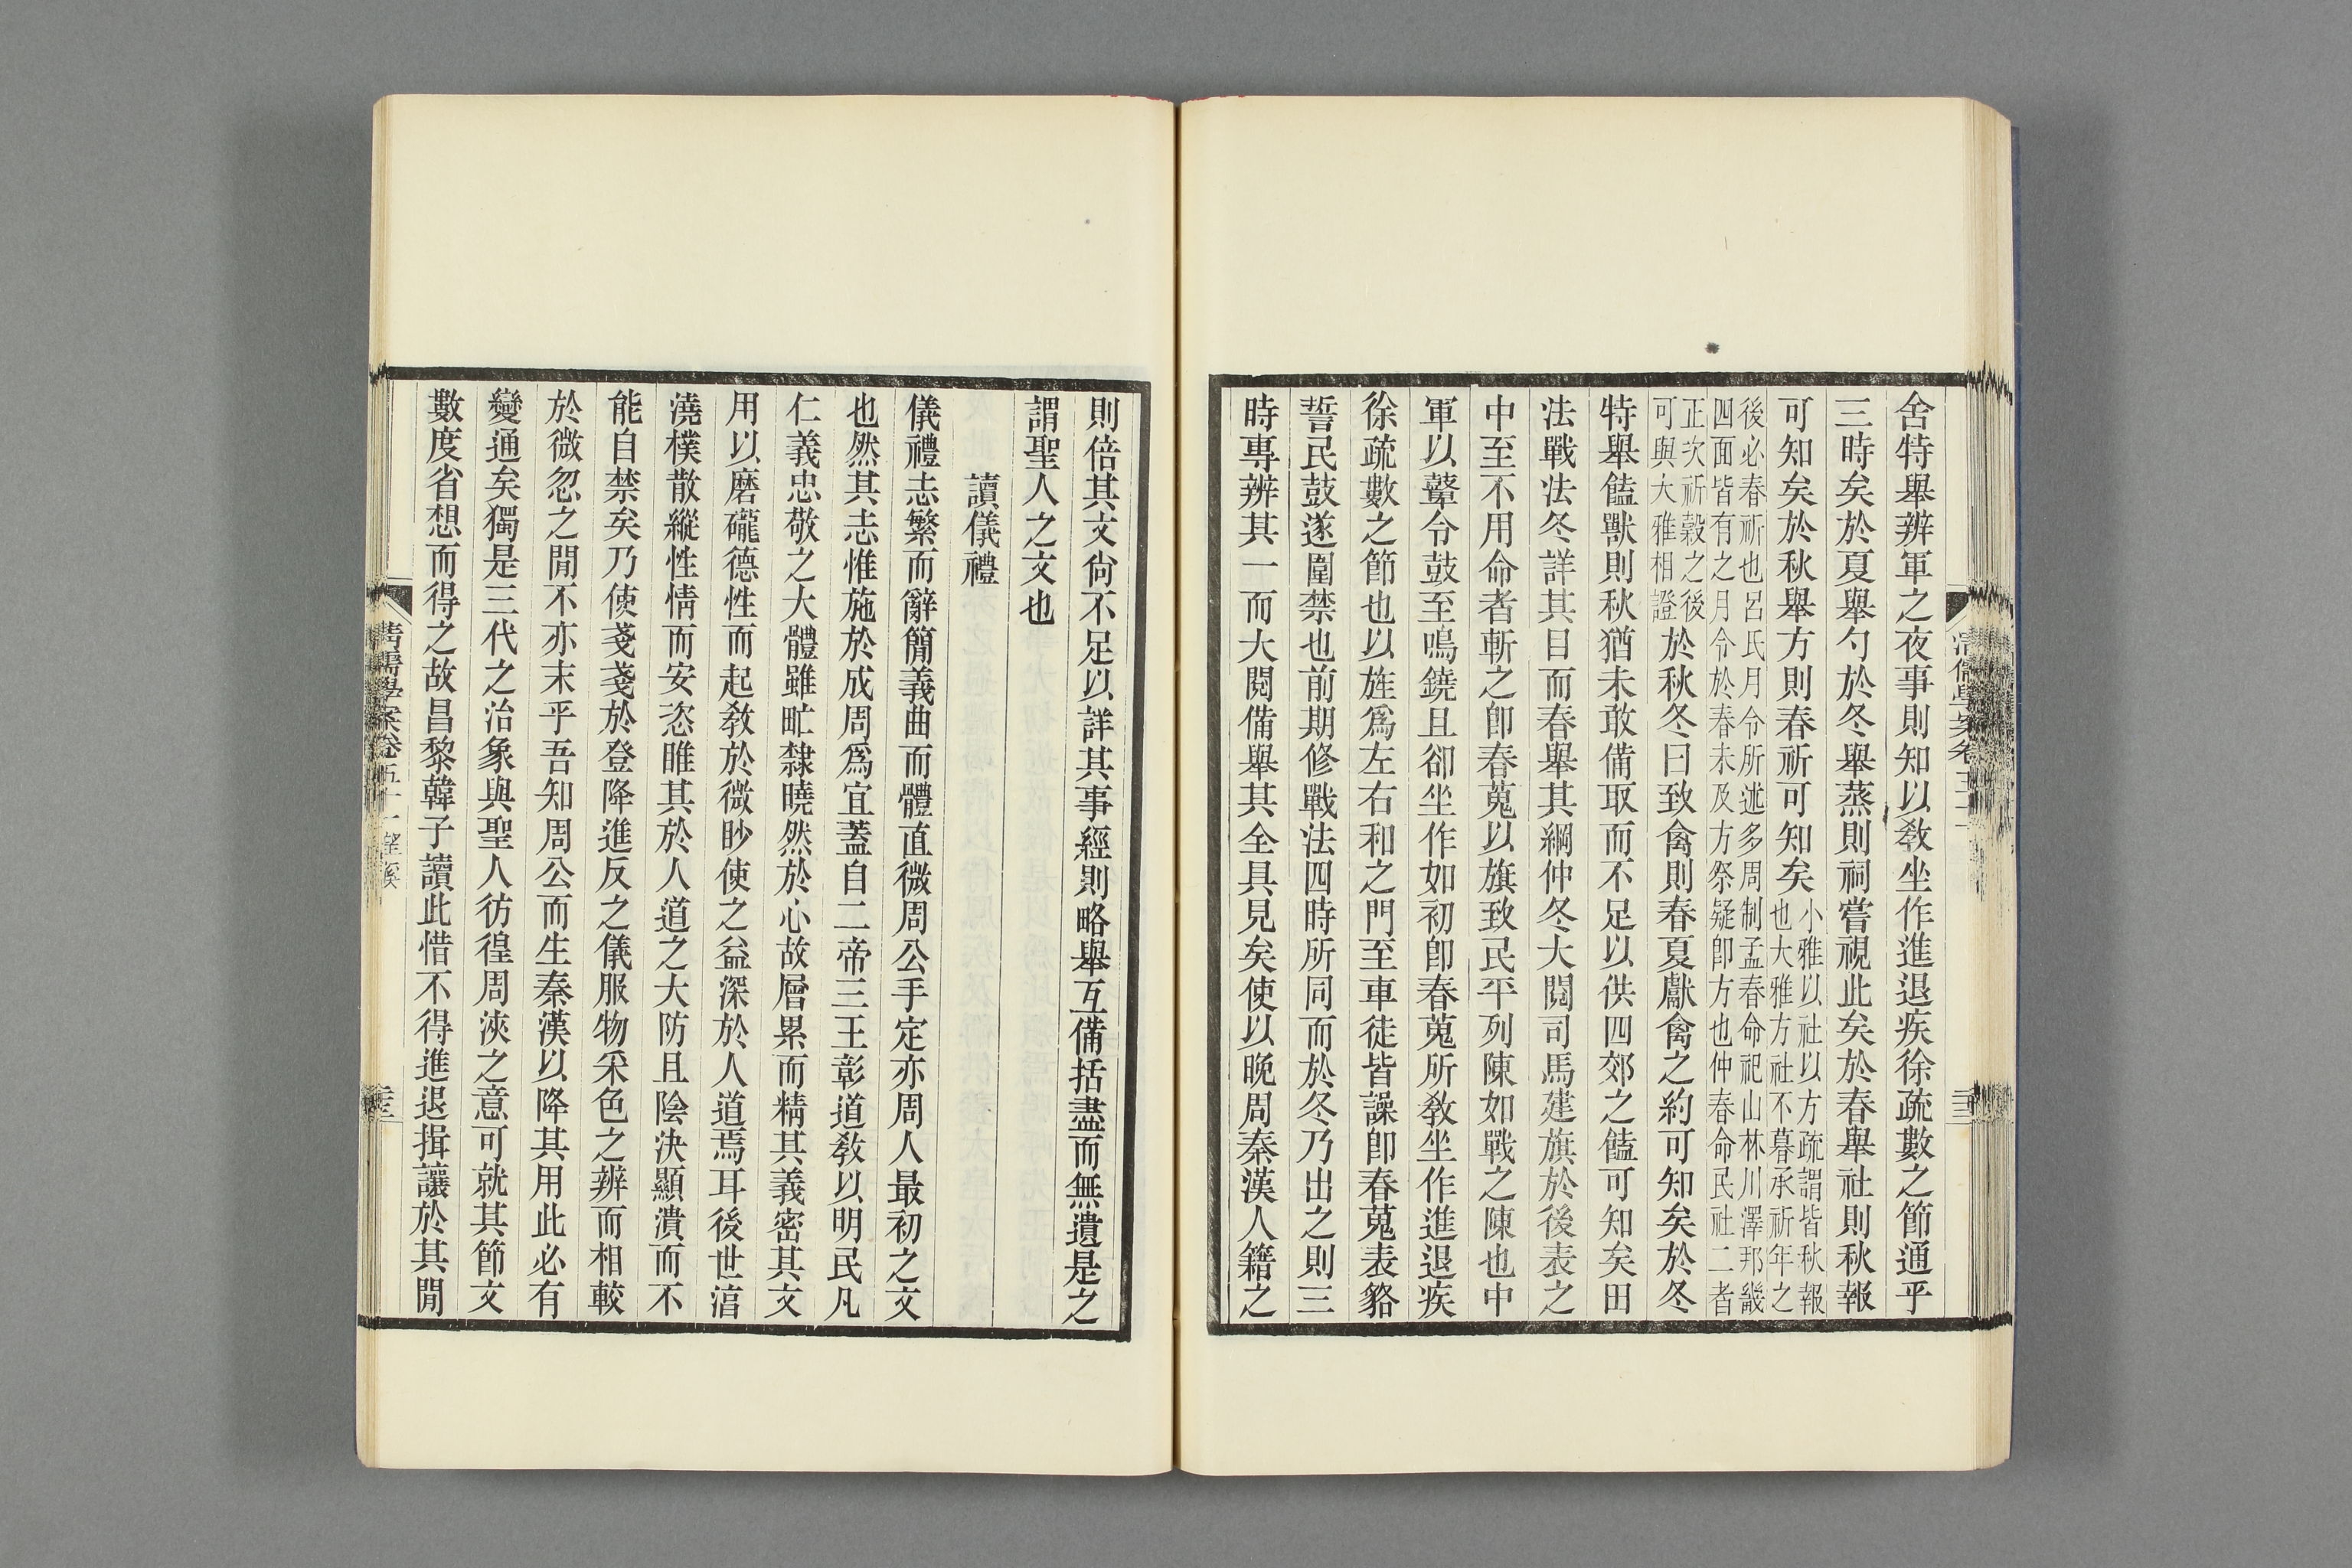 舍特舉辨軍之夜事則知以敎坐作進退疾徐疏數之節通乎
三時矣於夏舉勺於冬舉蒸則祠嘗視此矣於春舉社則秋報
可知矣於秋舉方則春祈可知矣小雅以社以方疏謂皆秋報
也大雅方社不暮承祈年之
後必春祈也呂氏月令所述多周制孟春命祀山林川澤邦畿
四面皆有之月令於春未及方祭疑卽方也仲春命民社二者
正次祈穀之後
可與大雅相證於秋冬曰致禽則春夏獻禽之約可知矣於冬
特舉饁獸則秋猶未敢備取而不足以供四郊之饁可知矣田
法戰法冬詳其目而春舉其綱仲冬大閱司馬建旗於後表之
中至不用命者斬之卽春蒐以旗致民平列陳如戰之陳也中
軍以鼙令鼓至鳴鐃且卻坐作如初卽春蒐所敎坐作進退疾
徐疏數之節也以旌爲左右和之門至車徒皆譟卽春蒐表貉
誓民鼓遂圍禁也前期修戰法四時所同而於冬乃出之則三
時專辨其一而大閱備舉其全具見矣使以晚周秦漢人籍之
則倍其文尙不足以詳其事經則略舉互備括盡而無遺是之
謂聖人之文也
讀儀禮
儀禮志繁而辭簡義曲而體直微周公手定亦周人最初之文
也然其志惟施於成周爲宜蓋自二帝三王彰道敎以明民凡
仁義忠敬之大體雖甿隸曉然於心故層累而精其義密其文
用以磨礲德性而起敎於微眇使之益深於人道焉耳後世湻
澆樸散縱性情而安恣睢其於人道之大防且陰決顯潰而不
能自禁矣乃使戔戔於登降進反之儀服物采色之辨而相較
於微忽之閒不亦末乎吾知周公而生秦漢以降其用此必有
變通矣獨是三代之治象與聖人彷徨周浹之意可就其節文
數度省想而得之故昌黎韓子讀此惜不得進退揖讓於其閒
清儒學案卷五十一 望溪